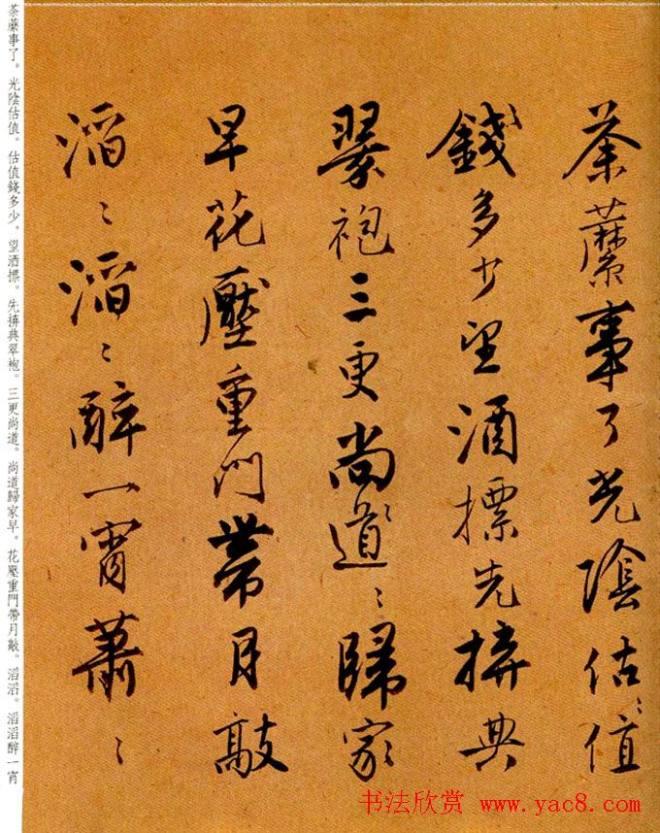 荼蘼事了光陰估〻值
錢多少望酒標先拚典
翠袍三更尚道〻歸家
早花壓重門帶月敲
滔〻滔〻醉一宵蕭〻
荼蘼事了。光陰估值。估值錢多少。望酒標。先拚典翠袍。三更尚道。尚道歸家早。花壓重門帶月敲。滔滔。滔滔醉一宵
书法欣赏 www.yac8.com